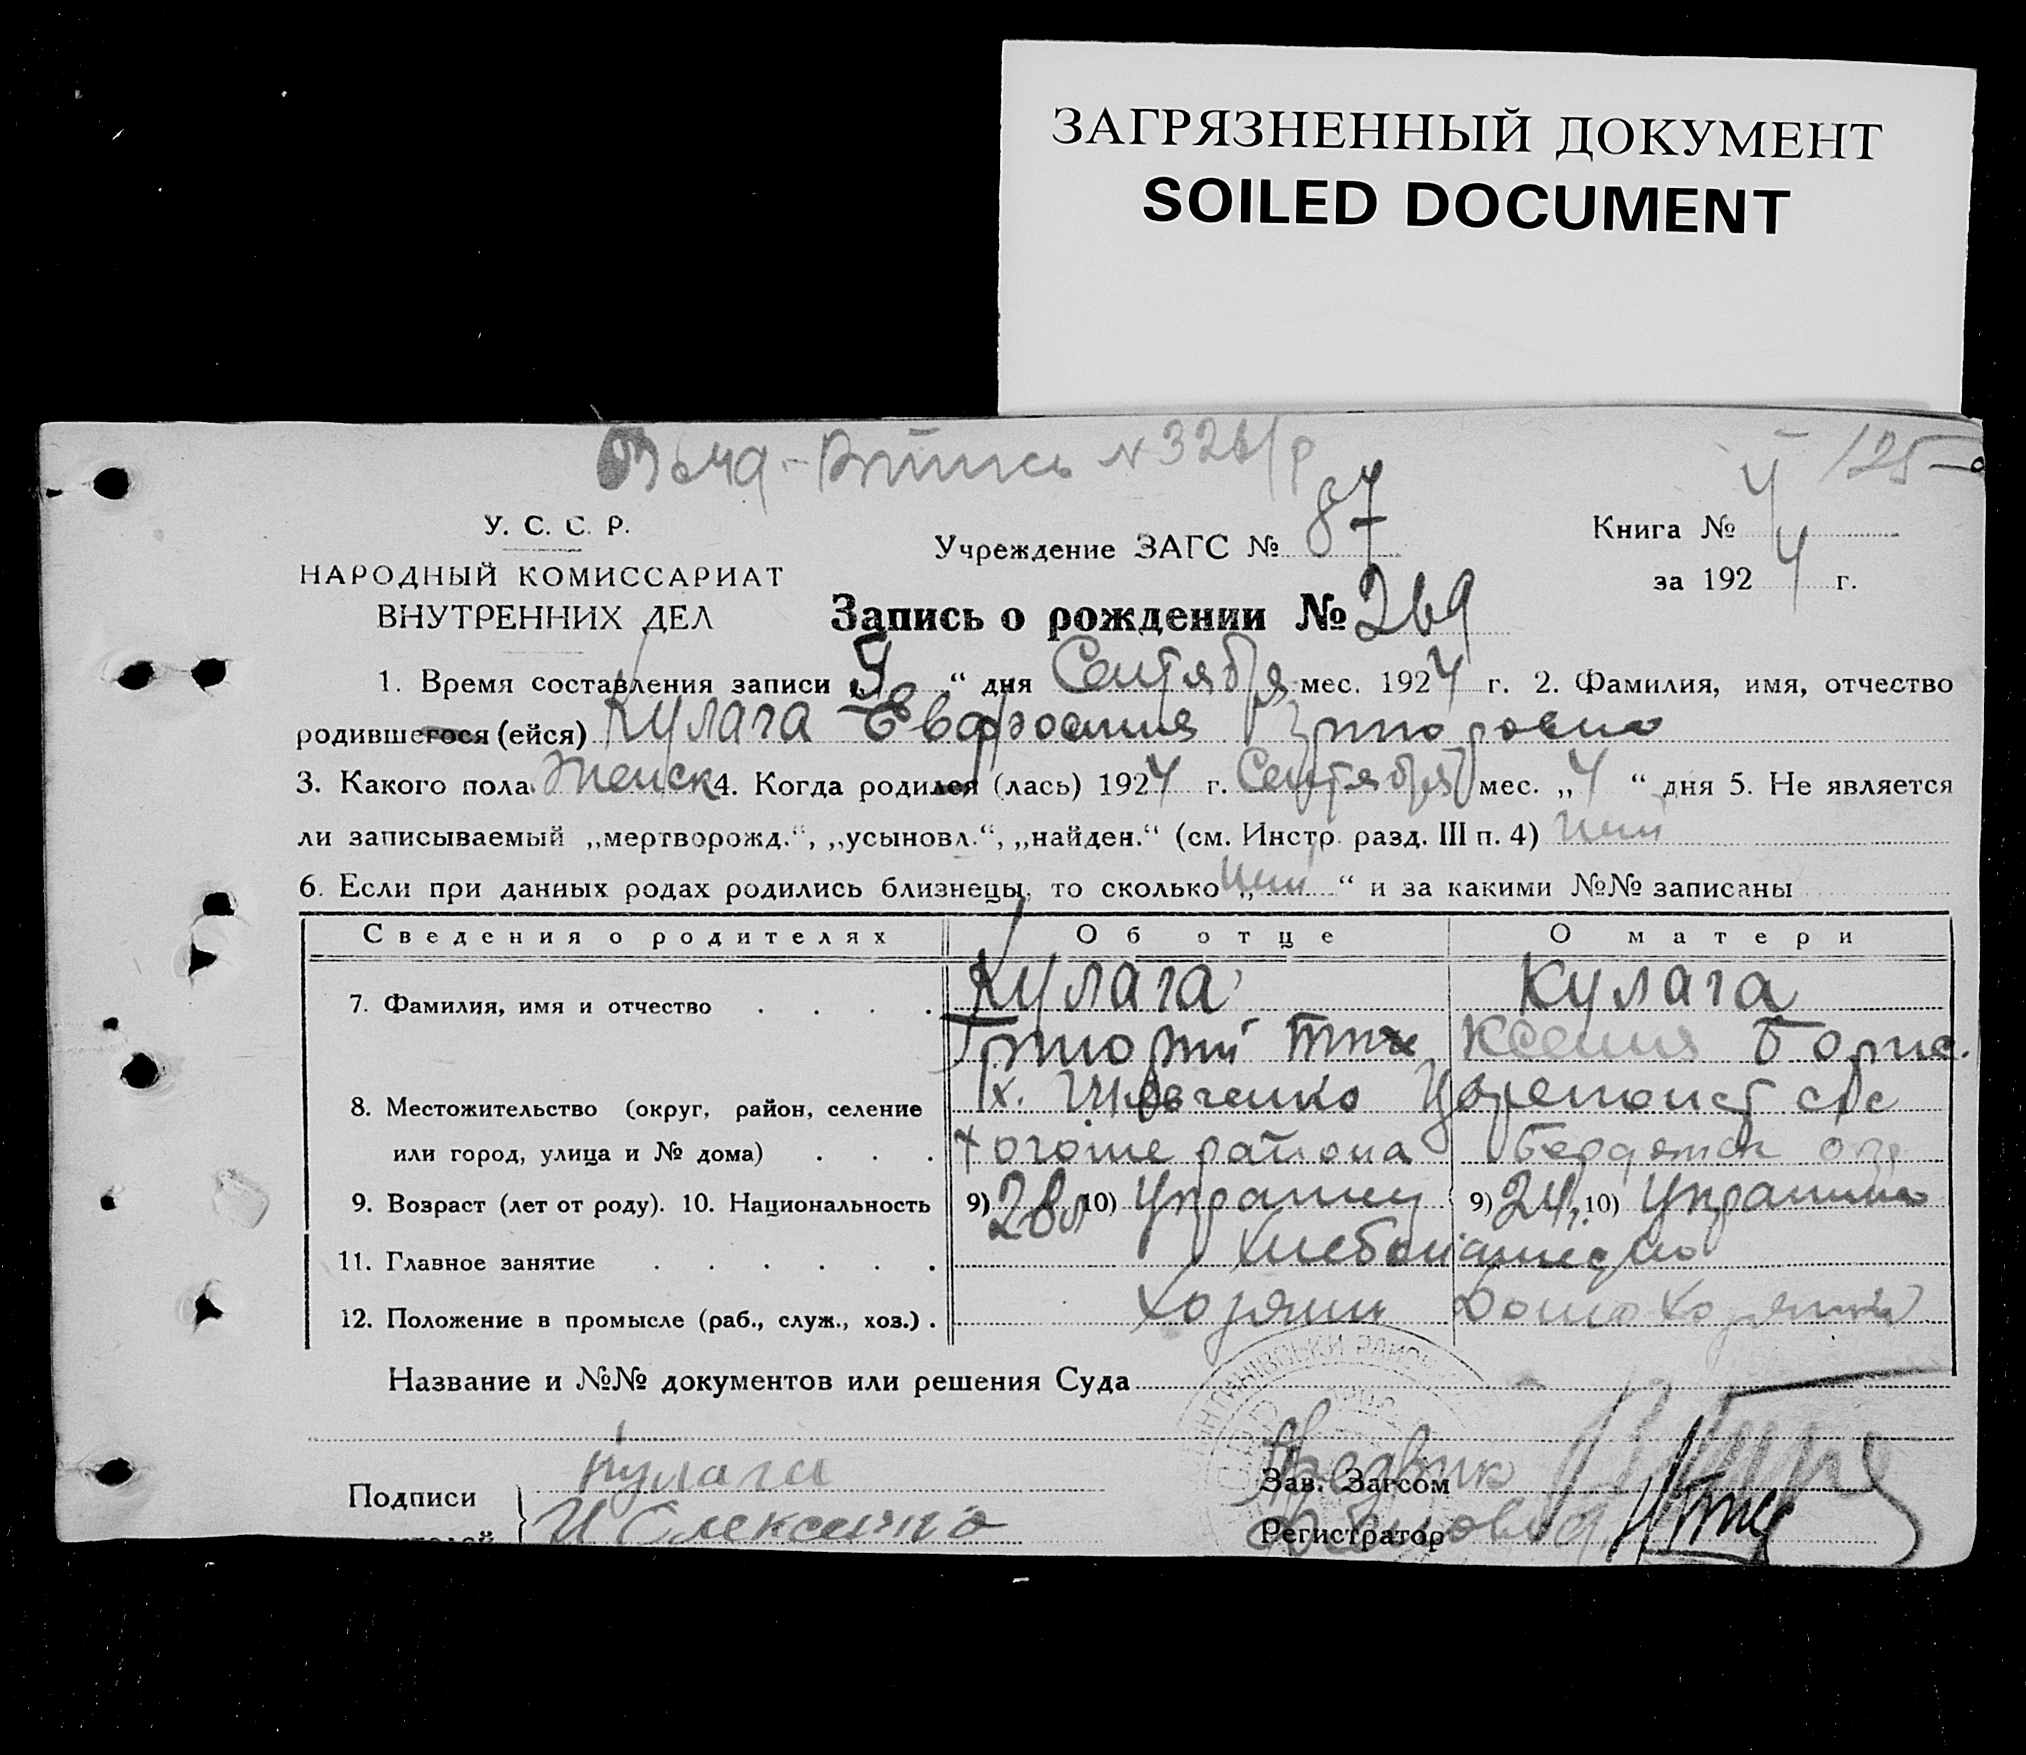 ЗАГРЯЗНЕННЫЙ ДОКУМЕНТ
SOILED DOCUMENT
125
У. С. С. Р.
НАРОДНЫЙ КОМИССАРИАТ
ВНУТРЕННИХ ДЕЛ
Учреждение ЗАГС № 87
Книга №
за 1924 г.
Запись о рождении № 269
1. Время составления записи „5“ дня Сентября мес. 1924 г. 2. Фамилия, имя, отчество
родившегося (ейся) Кулага Евфросиния Григоровна
3. Какого пола Женск 4. Когда родился (лась) 1924 г. Сентября мес. „4“ дня 5. Не является
ли записываемый „мертворожд.“, „усыновл.“, „найден.“ (см. Инстр. разд. III п. 4)
6. Если при данных родах родились близнецы, то сколько „ “ и за какими №№ записаны
Сведения о родителях Об отце О матери
7. Фамилия, имя и отчество Кулага Кулага
Григорий Тих Ксения Борис.
8. Местожительство (округ, район, селение х. Шевченко
или город, улица и № дома) района Бердянск
9. Возраст (лет от роду). 10. Национальность 9) 28 л 10) Украинец 9) 24 10) Украинка
11. Главное занятие Хлебопашество
12. Положение в промысле (раб., служ., хоз.) Хозяин Домохозяйка
Название и №№ документов или решения Суда
Подписи Кулага
И Олексенко
Зав. Загсом
Регистратор